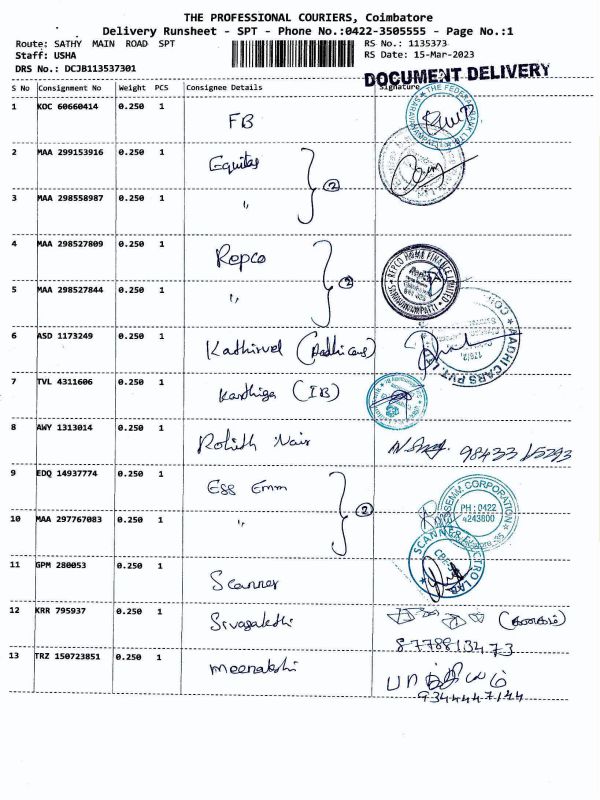 THE PROFESSIONAL COURIERS, Coimbatore
Delivery Runsheet - SPT - Phone No.:0422-3505555 - Page No.:1
Route: SATHY MAIN ROAD SPT
RS No.: 1135373
Staff: USHA
RS Date: 15-Mar-2023
DRS No.: DCJB113537301
DOCUMENT DELIVERY
S No Consignment No Weight PCS Consignee Details Signature
1 KOC 60660414 0.250 1 FB
THE FEDERAL BANK LTD
2 MAA 299153916 0.250 1 Equitas
②
3 MAA 298558987 0.250 1 "
4 MAA 298527809 0.250 1 Repco
②
REPCO HOME FINANCE LIMITED
5 MAA 298527844 0.250 1 "
6 ASD 1173249 0.250 1 Kathirvel (Aadhi cars)
AADHI CARS PVT. LTD.
7 TVL 4311606 0.250 1 Karthiga (IB)
8 AWY 1313014 0.250 1 Rohith Nair
98433 15293
9 EDQ 14937774 0.250 1 Ess Emm
②
CORPORATION
PH : 0422
4243800
10 MAA 297767083 0.250 1 "
11 GPM 280053 0.250 1 Scanner
12 KRR 795937 0.250 1 Sivasakthi
8778813473
13 TRZ 150723851 0.250 1 Meenakshi
9344447144